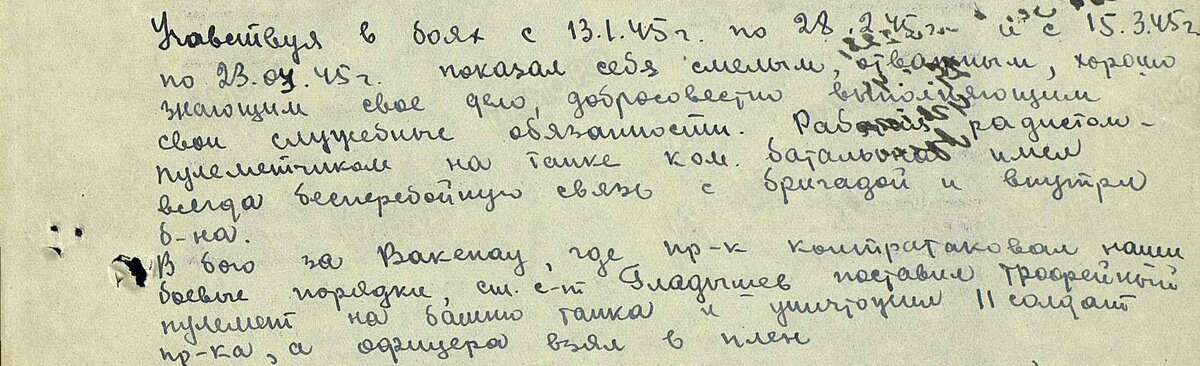 Участвуя в боях с 13.1.45г. по 28.2.45г. и с 15.3.45г
по 23.03.45г. показал себя смелым, отважным, хорошо
знающим свое дело, добросовестно выполняющим
свои служебные обязанности. Работая радистом-
пулеметчиком на танке ком. батальона имел
всегда бесперебойную связь с бригадой и внутри
б-на.
В бою за Вакенау, где пр-к контратаковал наши
боевые порядки, ст. с-т Гладышев поставил трофейный
пулемет на башню танка и уничтожил 11 солдат
пр-ка, а офицера взял в плен